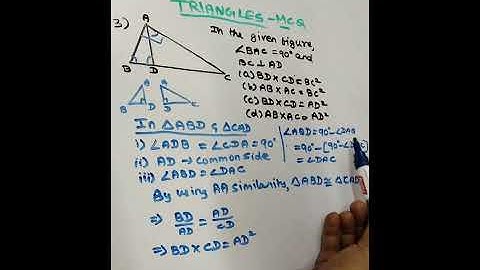 TRIANGLES-MCQ
3)
A
B
D
C
In the given figure,
∠BAC = 90° and
BC ⊥ AD
(a) BD × CD = BC²
(b) AB × AC = BC²
(c) BD × CD = AD²
(d) AB × AC = AD²
A
B
D
A
D
C
In △ABD & △CAD
i) ∠ADB = ∠CDA = 90°
ii) AD → common side
iii) ∠ABD = ∠DAC
∠ABD = 90° - ∠DAB
= 90° - [90° - ∠
= ∠DAC
By using AA similarity, △ABD ≅ △CAD
⇒ BD/AD = AD/CD
⇒ BD × CD = AD²